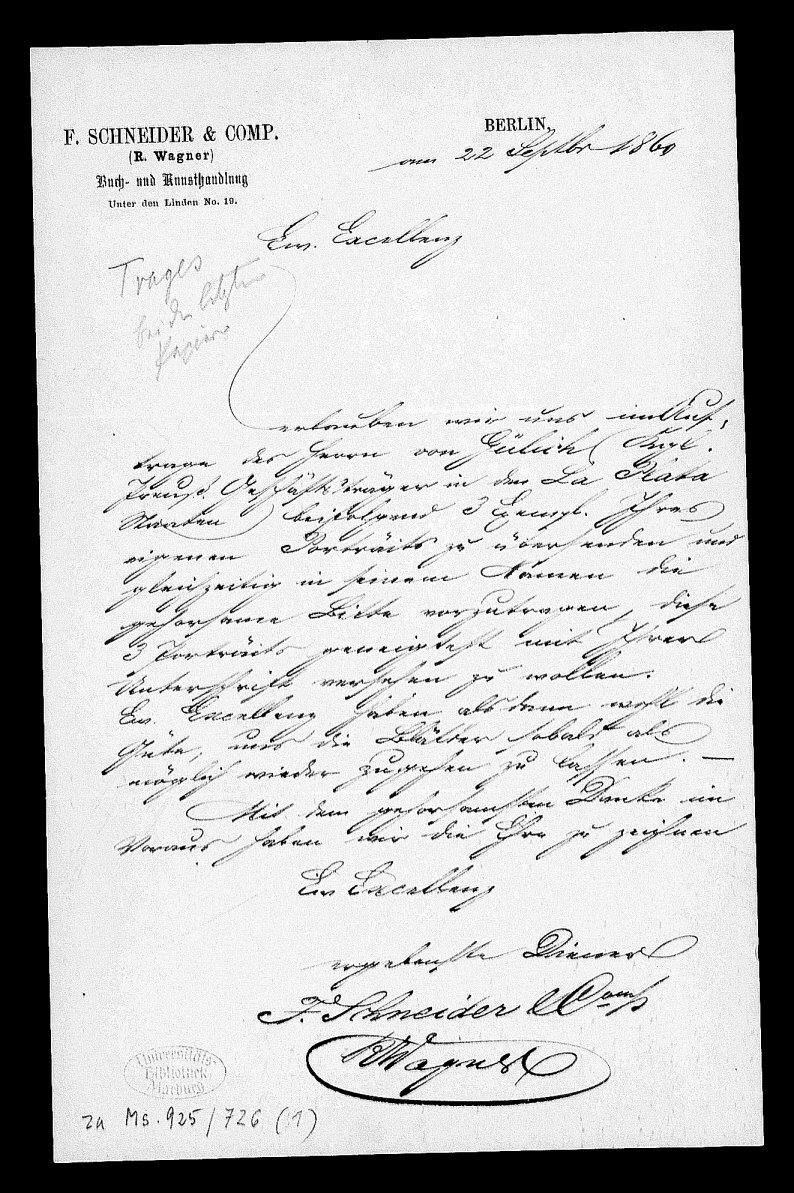 F. SCHNEIDER & COMP.
(R. Wagner)
Buch- und Kunsthandlung
Unter den Linden No. 19.
BERLIN,
am 22 Septbr 1860
Ew. Excellenz
bei den letzten
Papieren
erlauben wir uns im Auf-
trage des Herrn von Gülich (Kgl.
Preuß. Geschäftsträger in den La Plata
Staaten) beifolgend 3 Exempl. Ihres
eigenen Porträits zu übersenden und
gleichzeitig in seinem Namen die
gehorsame Bitte vorzutragen, diese
3 Porträits geneigtest mit Ihrer
Unterschrift versehen zu wollen.
Ew. Excellenz haben alsdann wohl die
Güte, uns die Blätter sobald als
möglich wieder zugehen zu lassen. —
Mit dem gehorsamsten Danke im
Voraus haben wir die Ehre zu zeichnen
Ew Excellenz
ergebenste Diener
F. Schneider & Comp
RWagner
Universitäts-
Bibliothek
Marburg
za Ms. 925/726 (1)